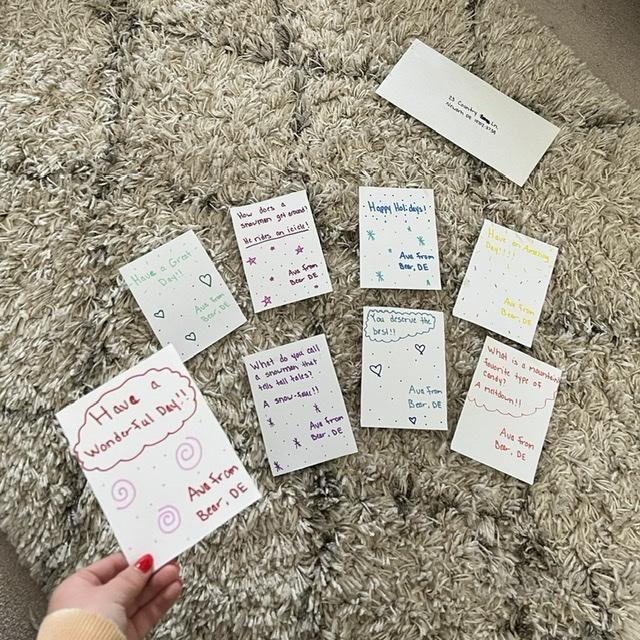 23 Country Ln
Newark DE
How does a
snowman get around?
He rides an icicle!
Ava from
Bear, DE
Happy Holidays!
Ava from
Bear, DE
Have an Amazing
Day!!!!
Ava from
Bear, DE
Have a Great
Day!!
Ava from
Bear, DE
What do you call
a snowman that
tells tall tales?
A snow-fake!!
Ava from
Bear, DE
You deserve the
best!!
Ava from
Bear, DE
What is a mountain
favorite type of
candy?
A meltdown!!
Ava from
Bear, DE
Have a
Wonderful Day!!
Ava from
Bear, DE